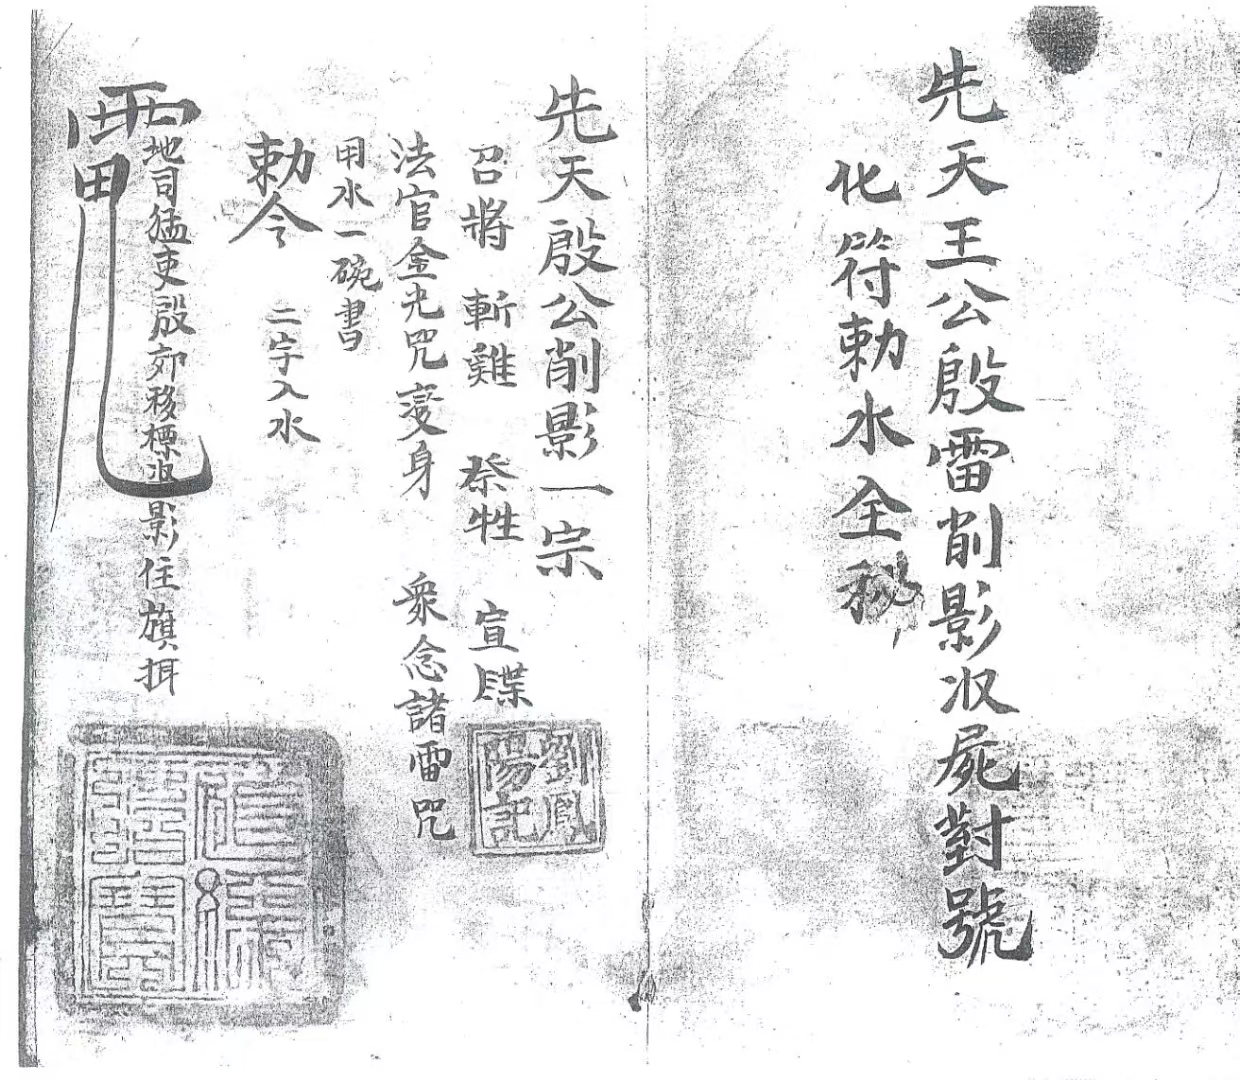 先天王公殷雷削影收屍對號
化符勅水全秘
先天殷公削影一宗
召將 斬雞 祭牲 宣牒
劉鳳陽記
法官金光咒变身 衆念諸雷咒
用水一碗書
勅令 二字入水
地司猛吏殷郊移標收影住旗